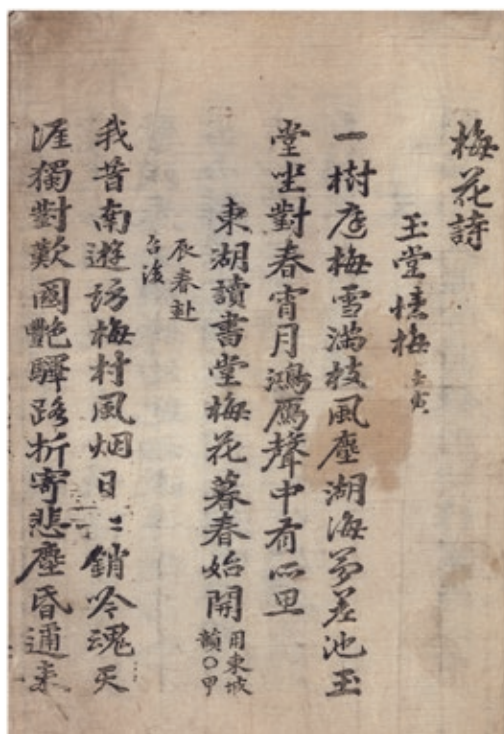 梅花詩
玉堂憶梅 壬寅
一樹庭梅雪滿枝風塵湖海夢差池玉
堂坐對春宵月鴻鴈聲中有所思
東湖讀書堂梅花暮春始開 用東坡韻○甲
辰春赴
召後
我昔南遊訪梅村風烟日〻銷吟魂天
涯獨對歎國艶驛路折寄悲塵昏邇來